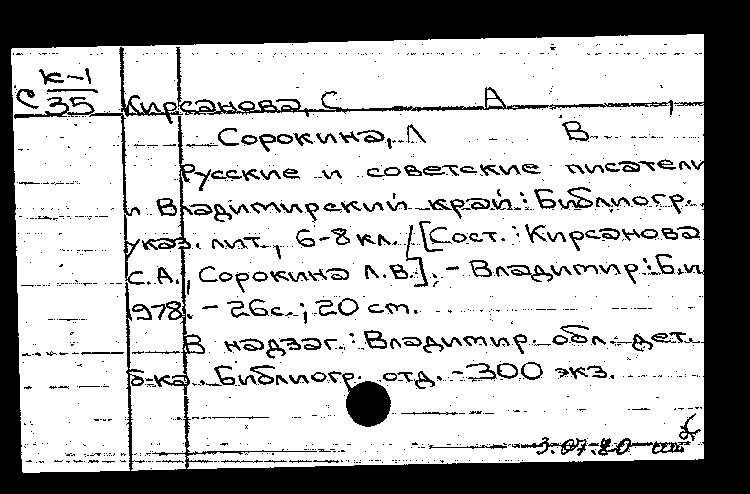 С К-1
35 Кирсанова, С А
Сорокина, Л В
Русские и советские писатели
и Владимирский край: Библиогр.
указ. лит., 6-8 кл. / [Сост.: Кирсанова
С.А., Сорокина Л.В.]. - Владимир: Б.и
1978. - 26с.; 20 см.
В надзаг.: Владимир. обл. дет.
б-ка. Библиогр. отд. - 300 экз.
3.07.80